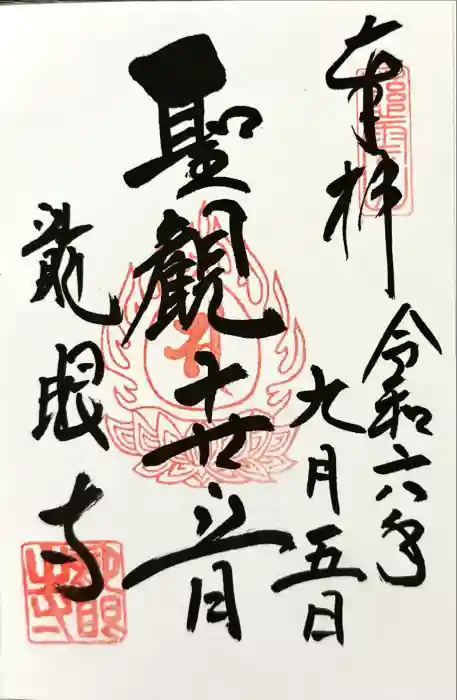 奉拝
令和六年
九月五日
聖觀世音
龍眼寺